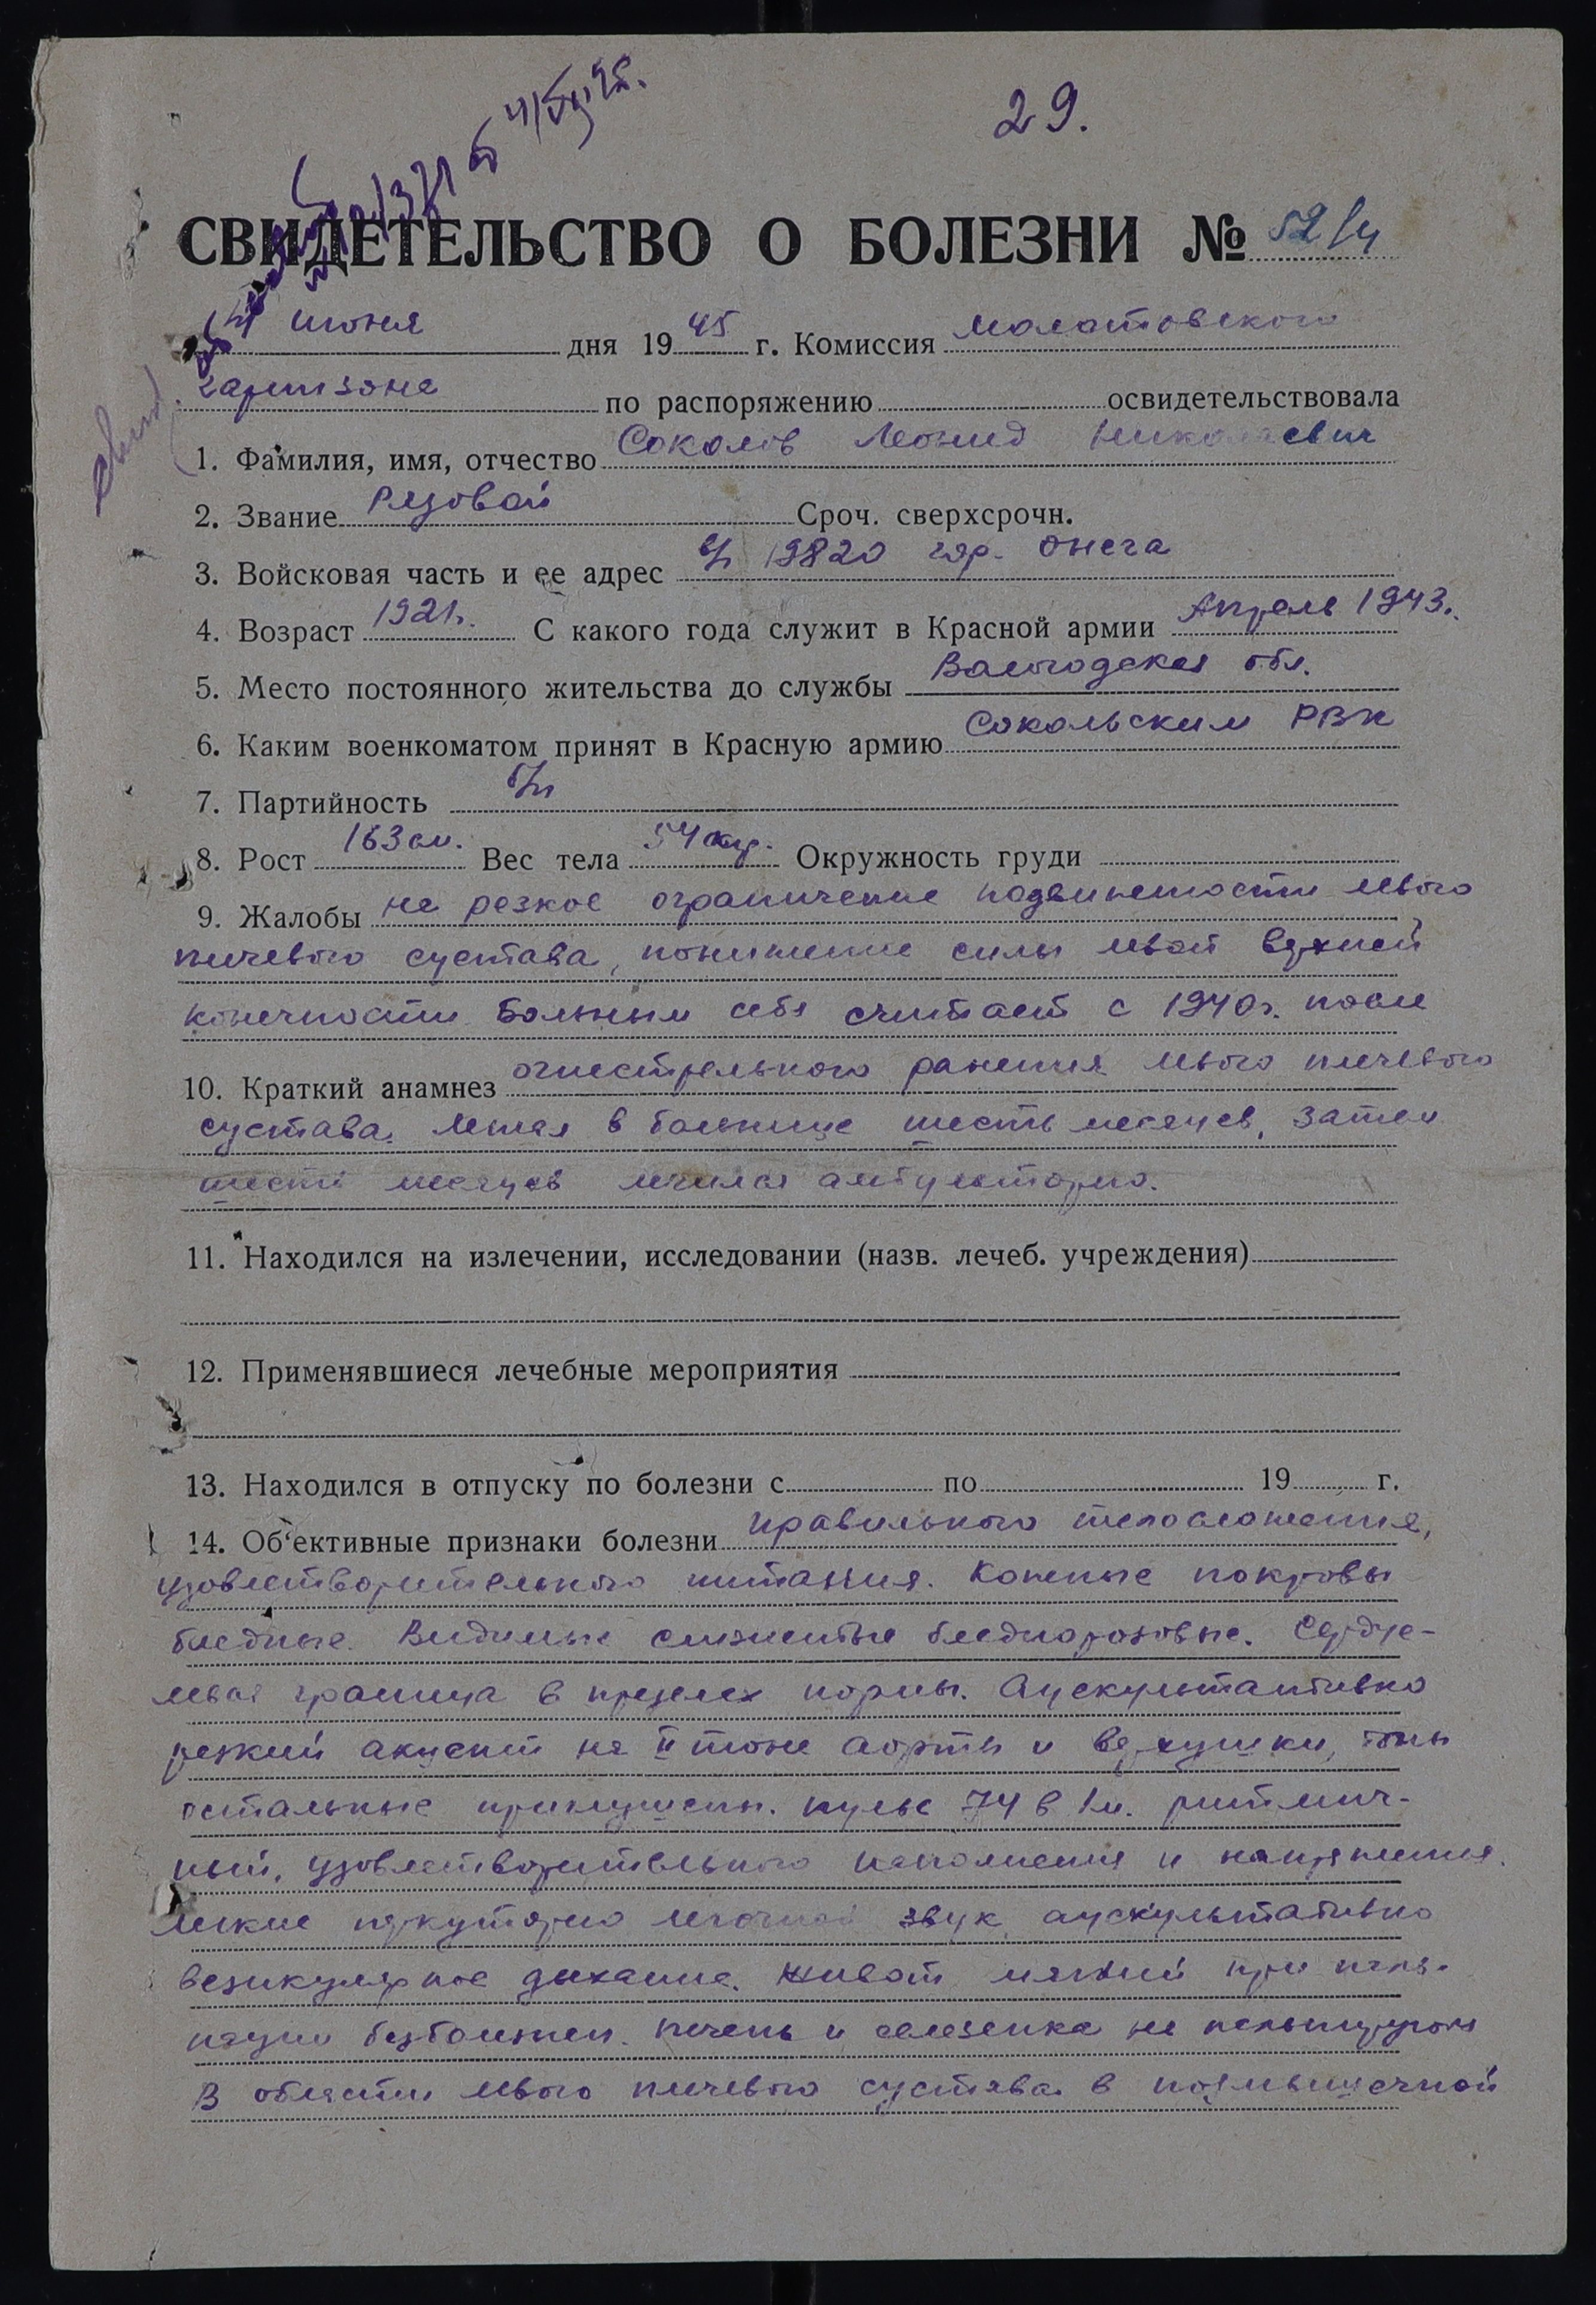 29.
СВИДЕТЕЛЬСТВО О БОЛЕЗНИ № 52/4
июня дня 1945 г. Комиссия Молотовского
гарнизона по распоряжению освидетельствовала
1. Фамилия, имя, отчество Соколов Леонид Николаевич
2. Звание Рядовой Сроч. сверхсрочн.
3. Войсковая часть и ее адрес в/ч 19820 гор. Онега
4. Возраст 1921г. С какого года служит в Красной армии Апрель 1943.
5. Место постоянного жительства до службы Вологодская обл.
6. Каким военкоматом принят в Красную армию Сокольским РВК
7. Партийность б/п
8. Рост 163 см. Вес тела 54 кгр. Окружность груди
9. Жалобы не резкое ограничение подвижности левого
плечевого сустава, понижение силы левой верхней
конечности Больным себя считает с 1940г. после
10. Краткий анамнез огнестрельного ранения левого плечевого
сустава. Лежал в больнице шесть месяцев, затем
шесть месяцев лечился амбулаторно.
11. Находился на излечении, исследовании (назв. лечеб. учреждения)
12. Применявшиеся лечебные мероприятия
13. Находился в отпуску по болезни с по 19 г.
14. Об‘ективные признаки болезни правильного телосложения,
удовлетворительного питания. Кожные покровы
бледные. Видимые слизистые бледнорозовые. Сердце-
левая граница в пределах нормы. Аускультативно
резкий акцент на II тоне аорты и верхушки, тоны
остальные приглушены. Пульс 74 в 1 м. ритмич-
ный, удовлетворительного наполнения и напряжения.
Легкие перкуторно легочной звук аускультативно
везикулярное дыхание. Живот мягкий при паль-
пации безболезнен. Печень и селезенка не пальпируются
В области левого плечевого сустава в подмышечной